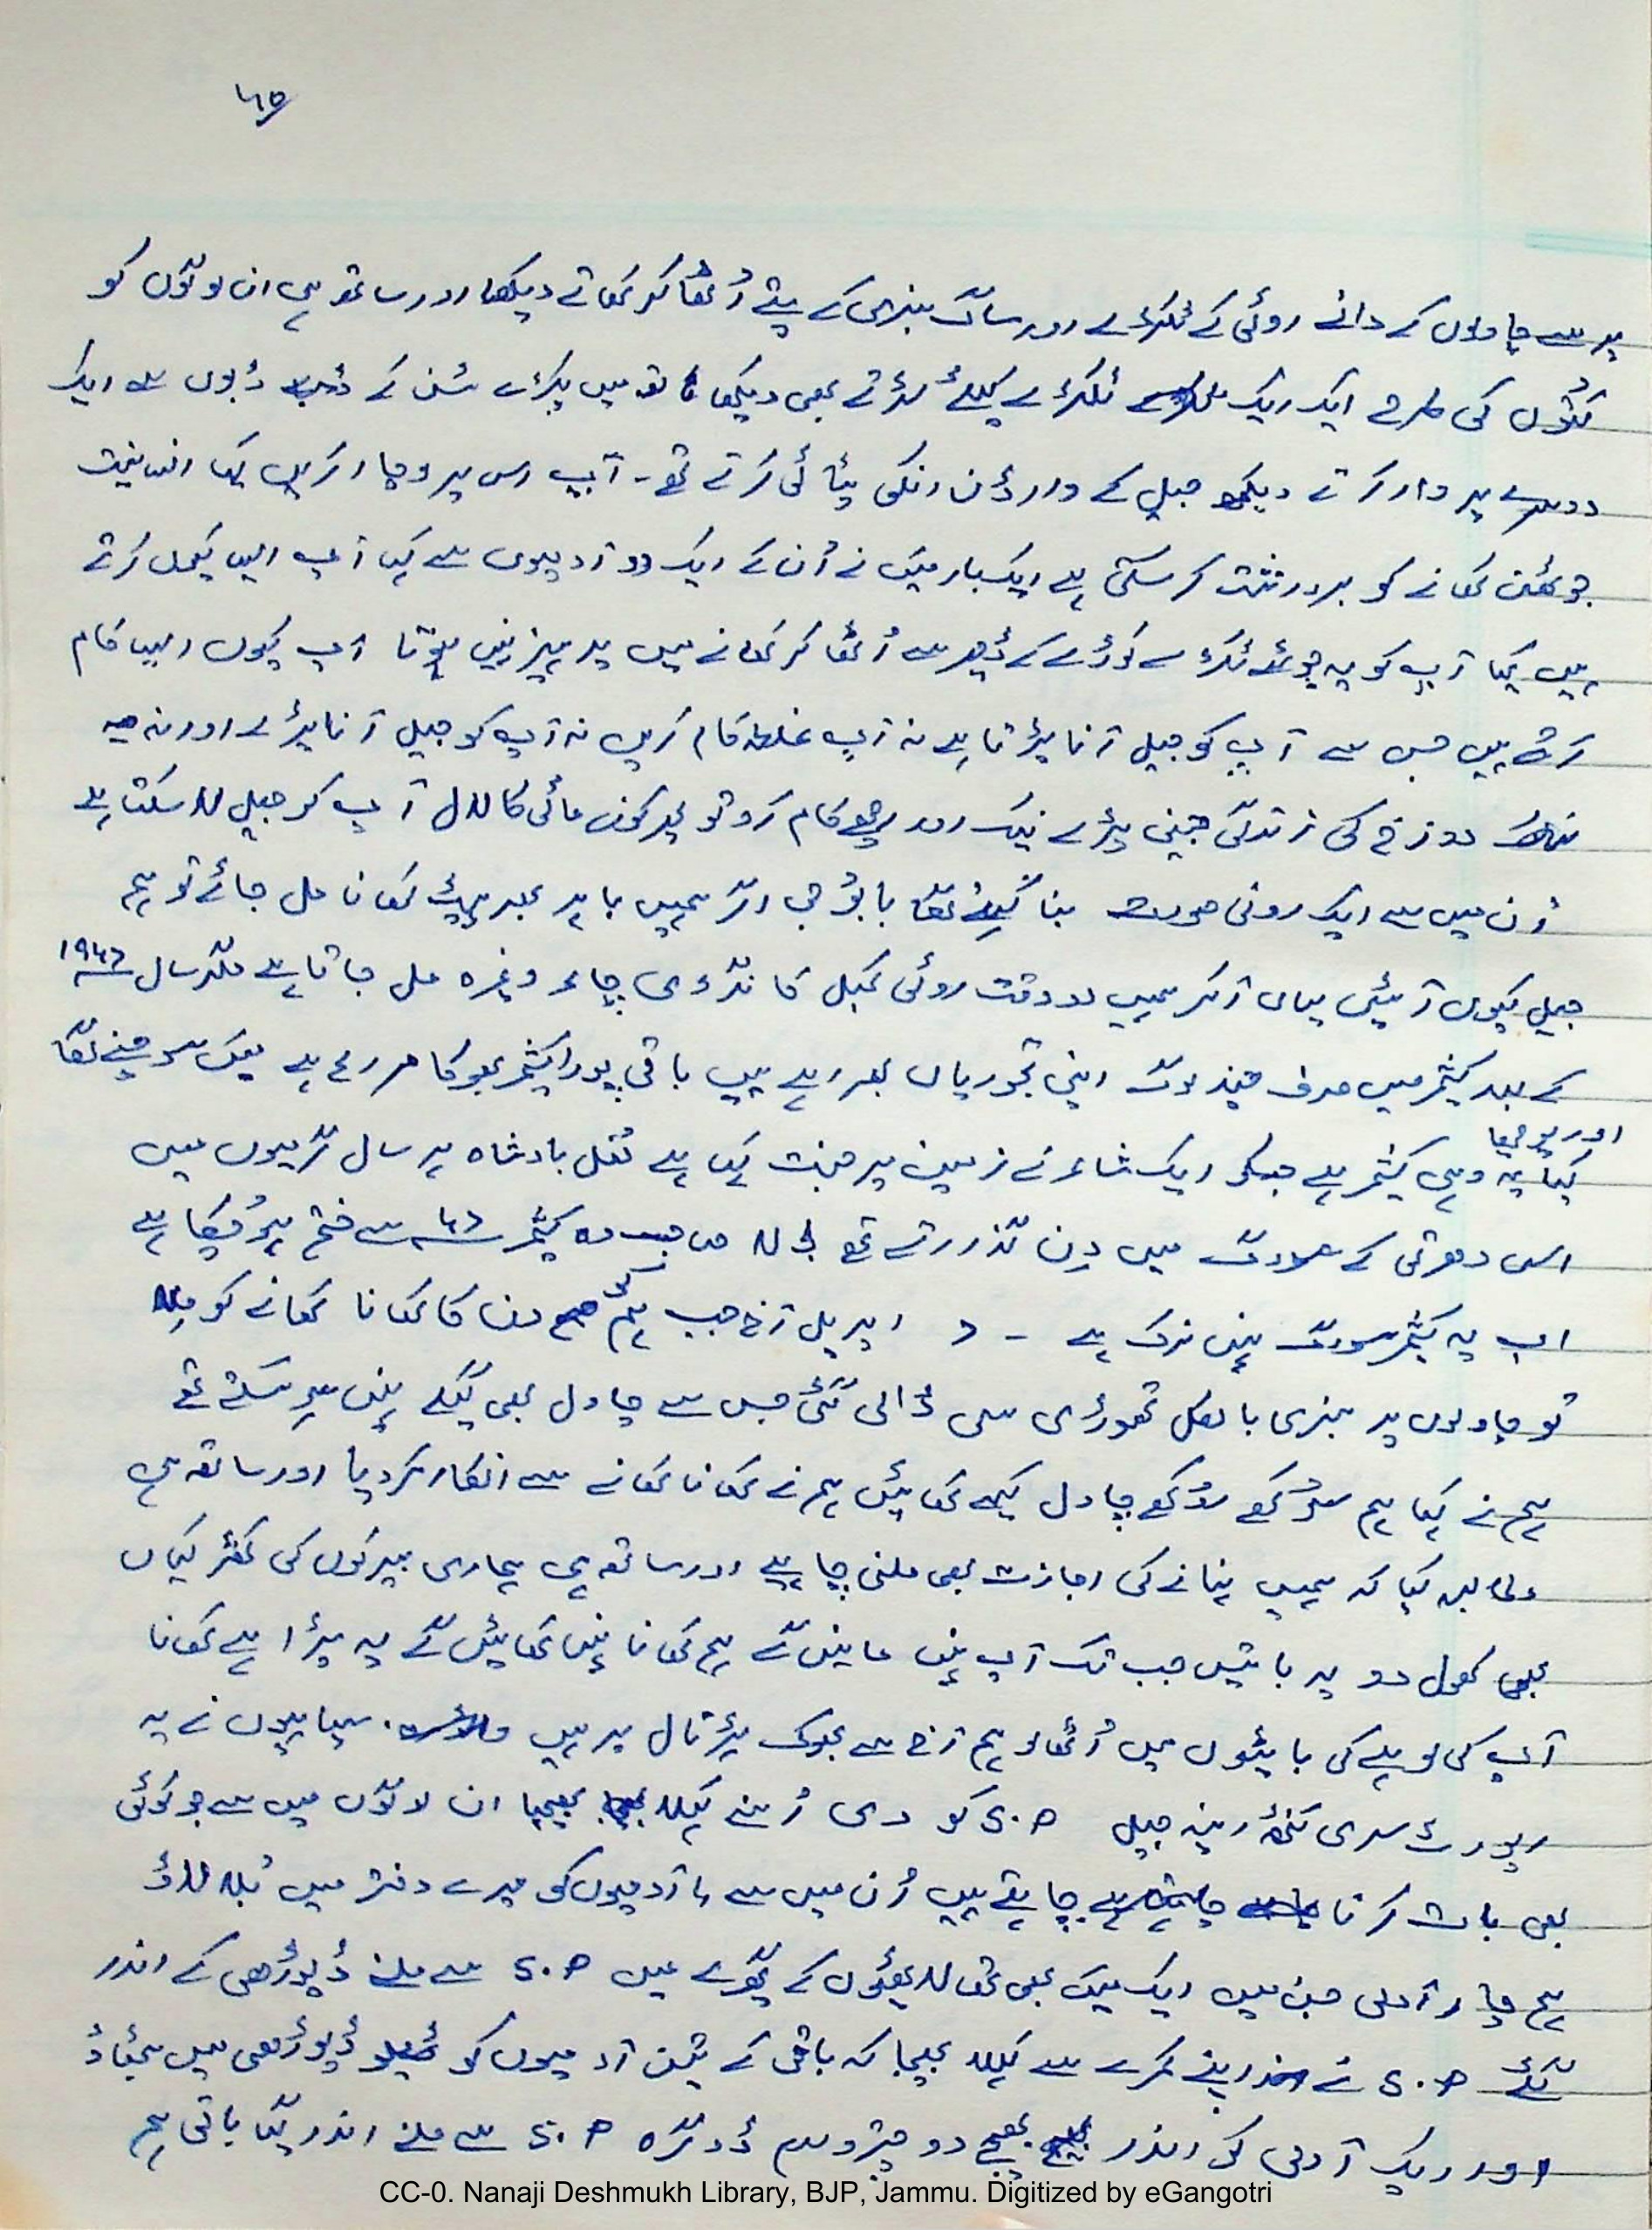 ۶۵
پر سے چاولوں کے دانے روٹی کے ٹکڑے اور ساگ سبزی کے پتے اُٹھا کر کھاتے دیکھا اور ساتھ ہی ان لوگوں کو
کتوں کی طرح ایک ایک ٹکڑے کیلئے لڑتے بھی دیکھا ہاتھ میں پکڑے ٹین کے ڈبوں سے ایک
دوسرے پر وار کرتے دیکھ جیل کے وارڈن انکی پٹائی کرتے تھے۔ آپ اس پر وچار کریں کیا انسانیت
جو کھانے کو برداشت کر سکتی ہے ایکبار میں نے اُن کے ایک دو آدمیوں سے کہا آپ ایسا کیوں کرتے
ہیں کیا آپ کو یہ جوٹھے ٹکڑے کوڑے کے ڈھیر سے اُٹھا کر کھانے میں پرہیز نہیں ہوتا آپ کیوں ایسا کام
کرتے ہیں جس سے آپ کو جیل آنا پڑتا ہے نہ آپ غلط کام کریں نہ آپ کو جیل آنا پڑے اور نہ یہ
دوزخ کی زندگی جینی پڑے نیک اور اچھے کام کرو تو پھر کون مائی کا لال آپ کو جیل لا سکتا ہے
اُن میں سے ایک رونی صورت بنا کہنے لگا بابو جی اگر ہمیں باہر بھر پیٹ کھانا مل جائے تو ہم
جیل کیوں آئیں یہاں آکر ہمیں دو وقت روٹی کمبل کانگڑی چاء وغیرہ مل جاتا ہے مگر سال ۱۹۴۷
کے بعد کشمیر میں صرف چند لوگ اپنی تجوریاں بھر رہے ہیں باقی پورا کشمیر بھوکا مر رہا ہے میں سوچنے لگا
اور پوچھا
کیا یہ وہی کشمیر ہے جسکو ایک شاعر نے زمین پر جنت کہا ہے مغل بادشاہ ہر سال گرمیوں میں
اسی دھرتی کے سورگ میں دِن گذارتے تھے لالہ صاحب وہ کشمیر ۴۷ سے ختم ہو چکا ہے
اب یہ کشمیر سورگ نہیں نرک ہے - ۷ اپریل آج جب ہم کو صبح دن کا کھانا کھانے کو مِلا
تو چاولوں پر سبزی بالکل تھوڑی سی ڈالی گئی جس سے چاول بھی گیلے نہیں ہو سکتے تھے
ہم نے کہا ہم سُوکھے سُوکھے چاول کیسے کھائیں ہم نے کھانا کھانے سے انکار کر دیا اور ساتھ ہی
مطالبہ کیا کہ ہمیں نہانے کی اجازت بھی ملنی چاہیے اور ساتھ ہی ہماری بیرکوں کی کھڑکیاں
بھی کھول دو یہ باتیں جب تک آپ نہیں مانیں گے ہم کھانا نہیں کھائیں گے یہ پڑا ہے کھانا
آپ کی لوہے کی بالٹیوں میں اُٹھا لو ہم آج سے بھوک ہڑتال پر ہیں سپاہیوں نے یہ
رپورٹ سری کنٹھ رینہ جیل S.P کو دی اُسنے کہلا بھیجا ان لوگوں میں سے جو کوئی
بھی بات کرنا چاہتے ہیں اُن میں سے ۴ آدمیوں کو میرے دفتر میں بُلا لاؤ
ہم چار آدمی جن میں ایک میں بھی تھا لاٹھیوں کے گھیرے میں S.P سے ملنے ڈیوڑھی کے اندر
گئے S.P نے اندر اپنے کمرے سے کہلا بھیجا کہ باقی کے تین آدمیوں کو ڈیوڑھی میں بٹھاؤ
اور ایک آدمی کو اندر بھیجے دو ڈوگرہ S.P سے ملنے اندر گیا باقی ہم
CC-0. Nanaji Deshmukh Library, BJP, Jammu. Digitized by eGangotri